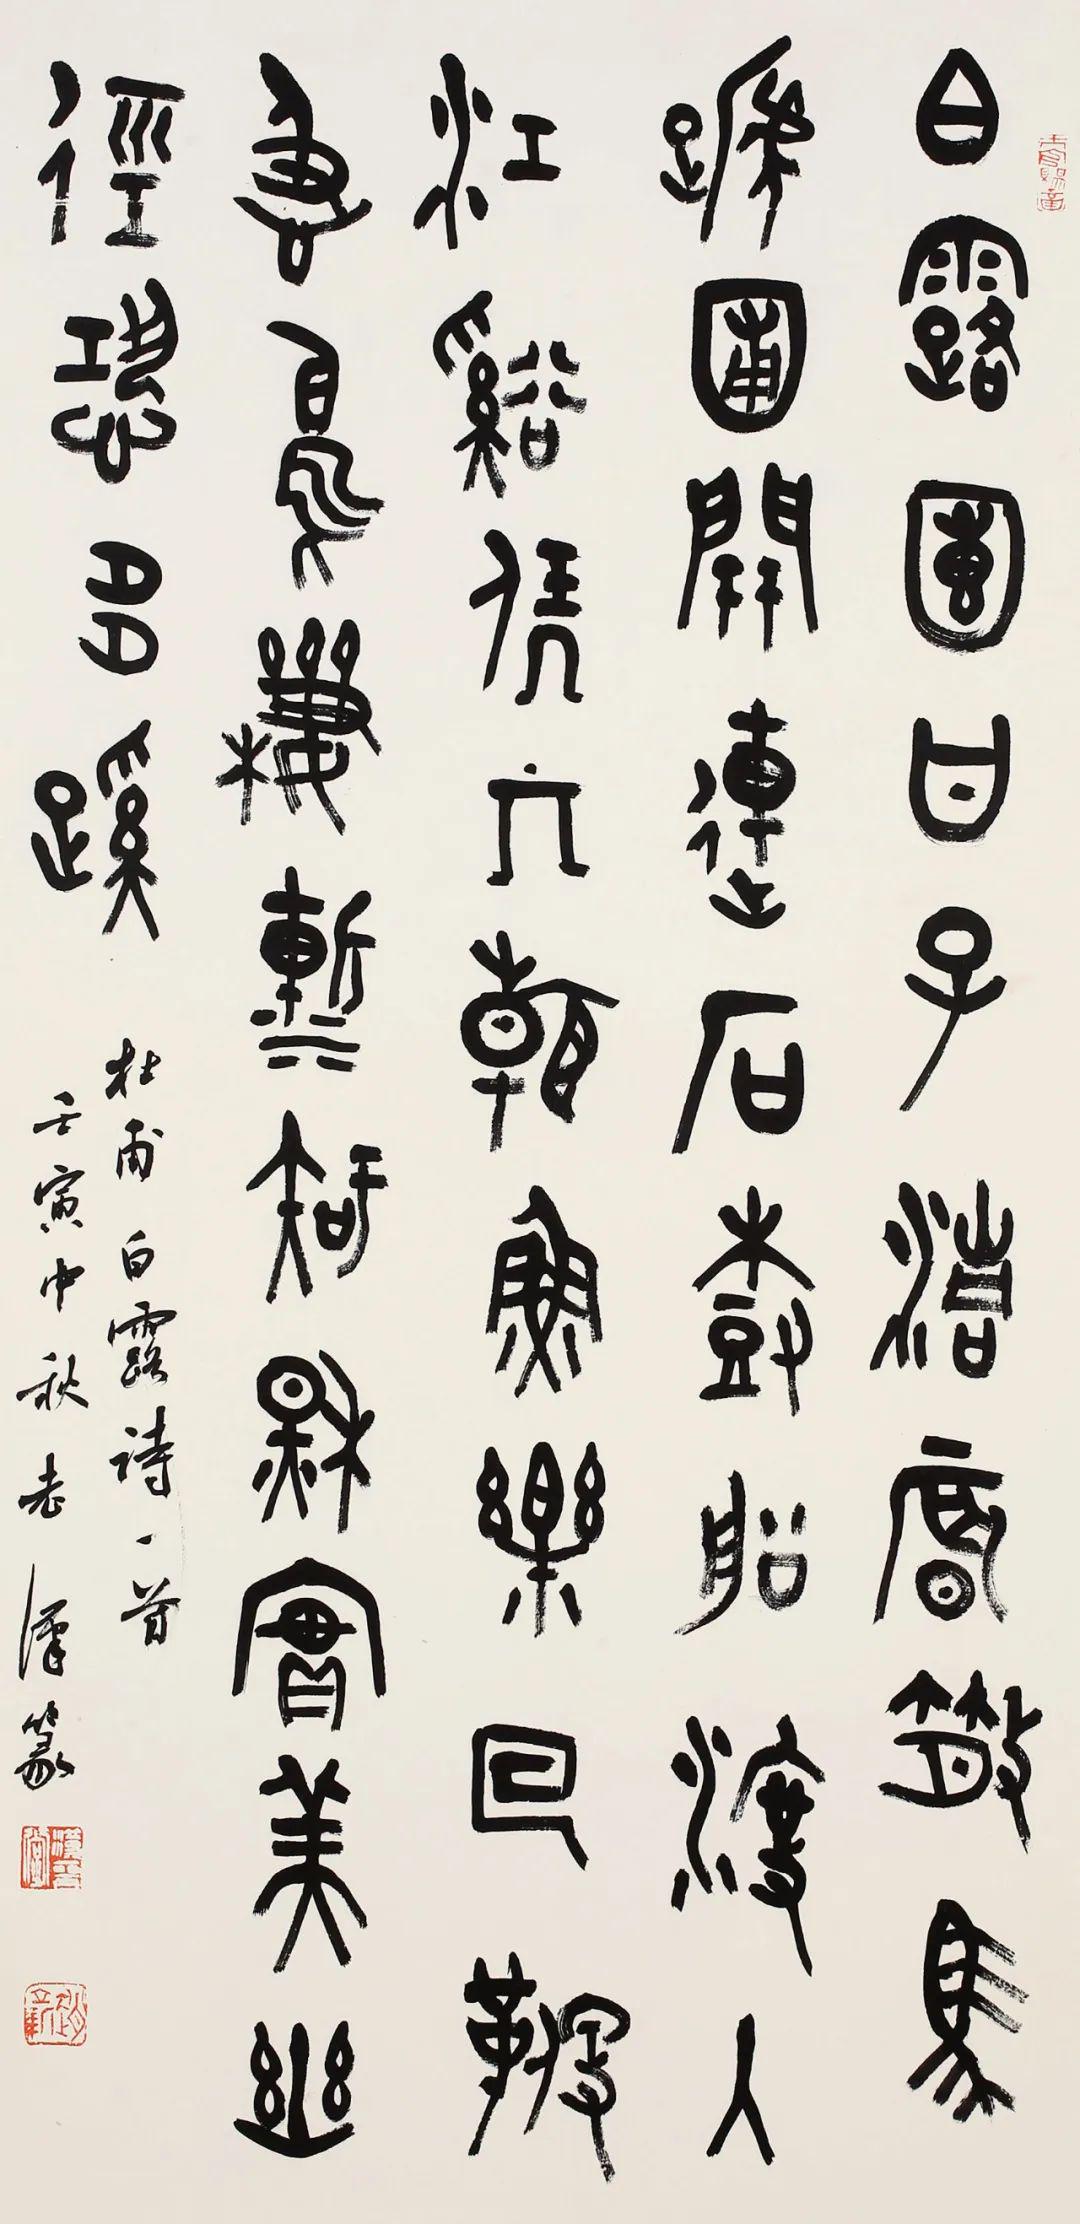 白露團甘子清晨散馬
蹏圃開連石樹船渡入
江谿凭几看魚樂回鞭
急鳥棲漸知秋實美幽
徑恐多蹊
杜甫白露詩一首
壬寅中秋老 篆